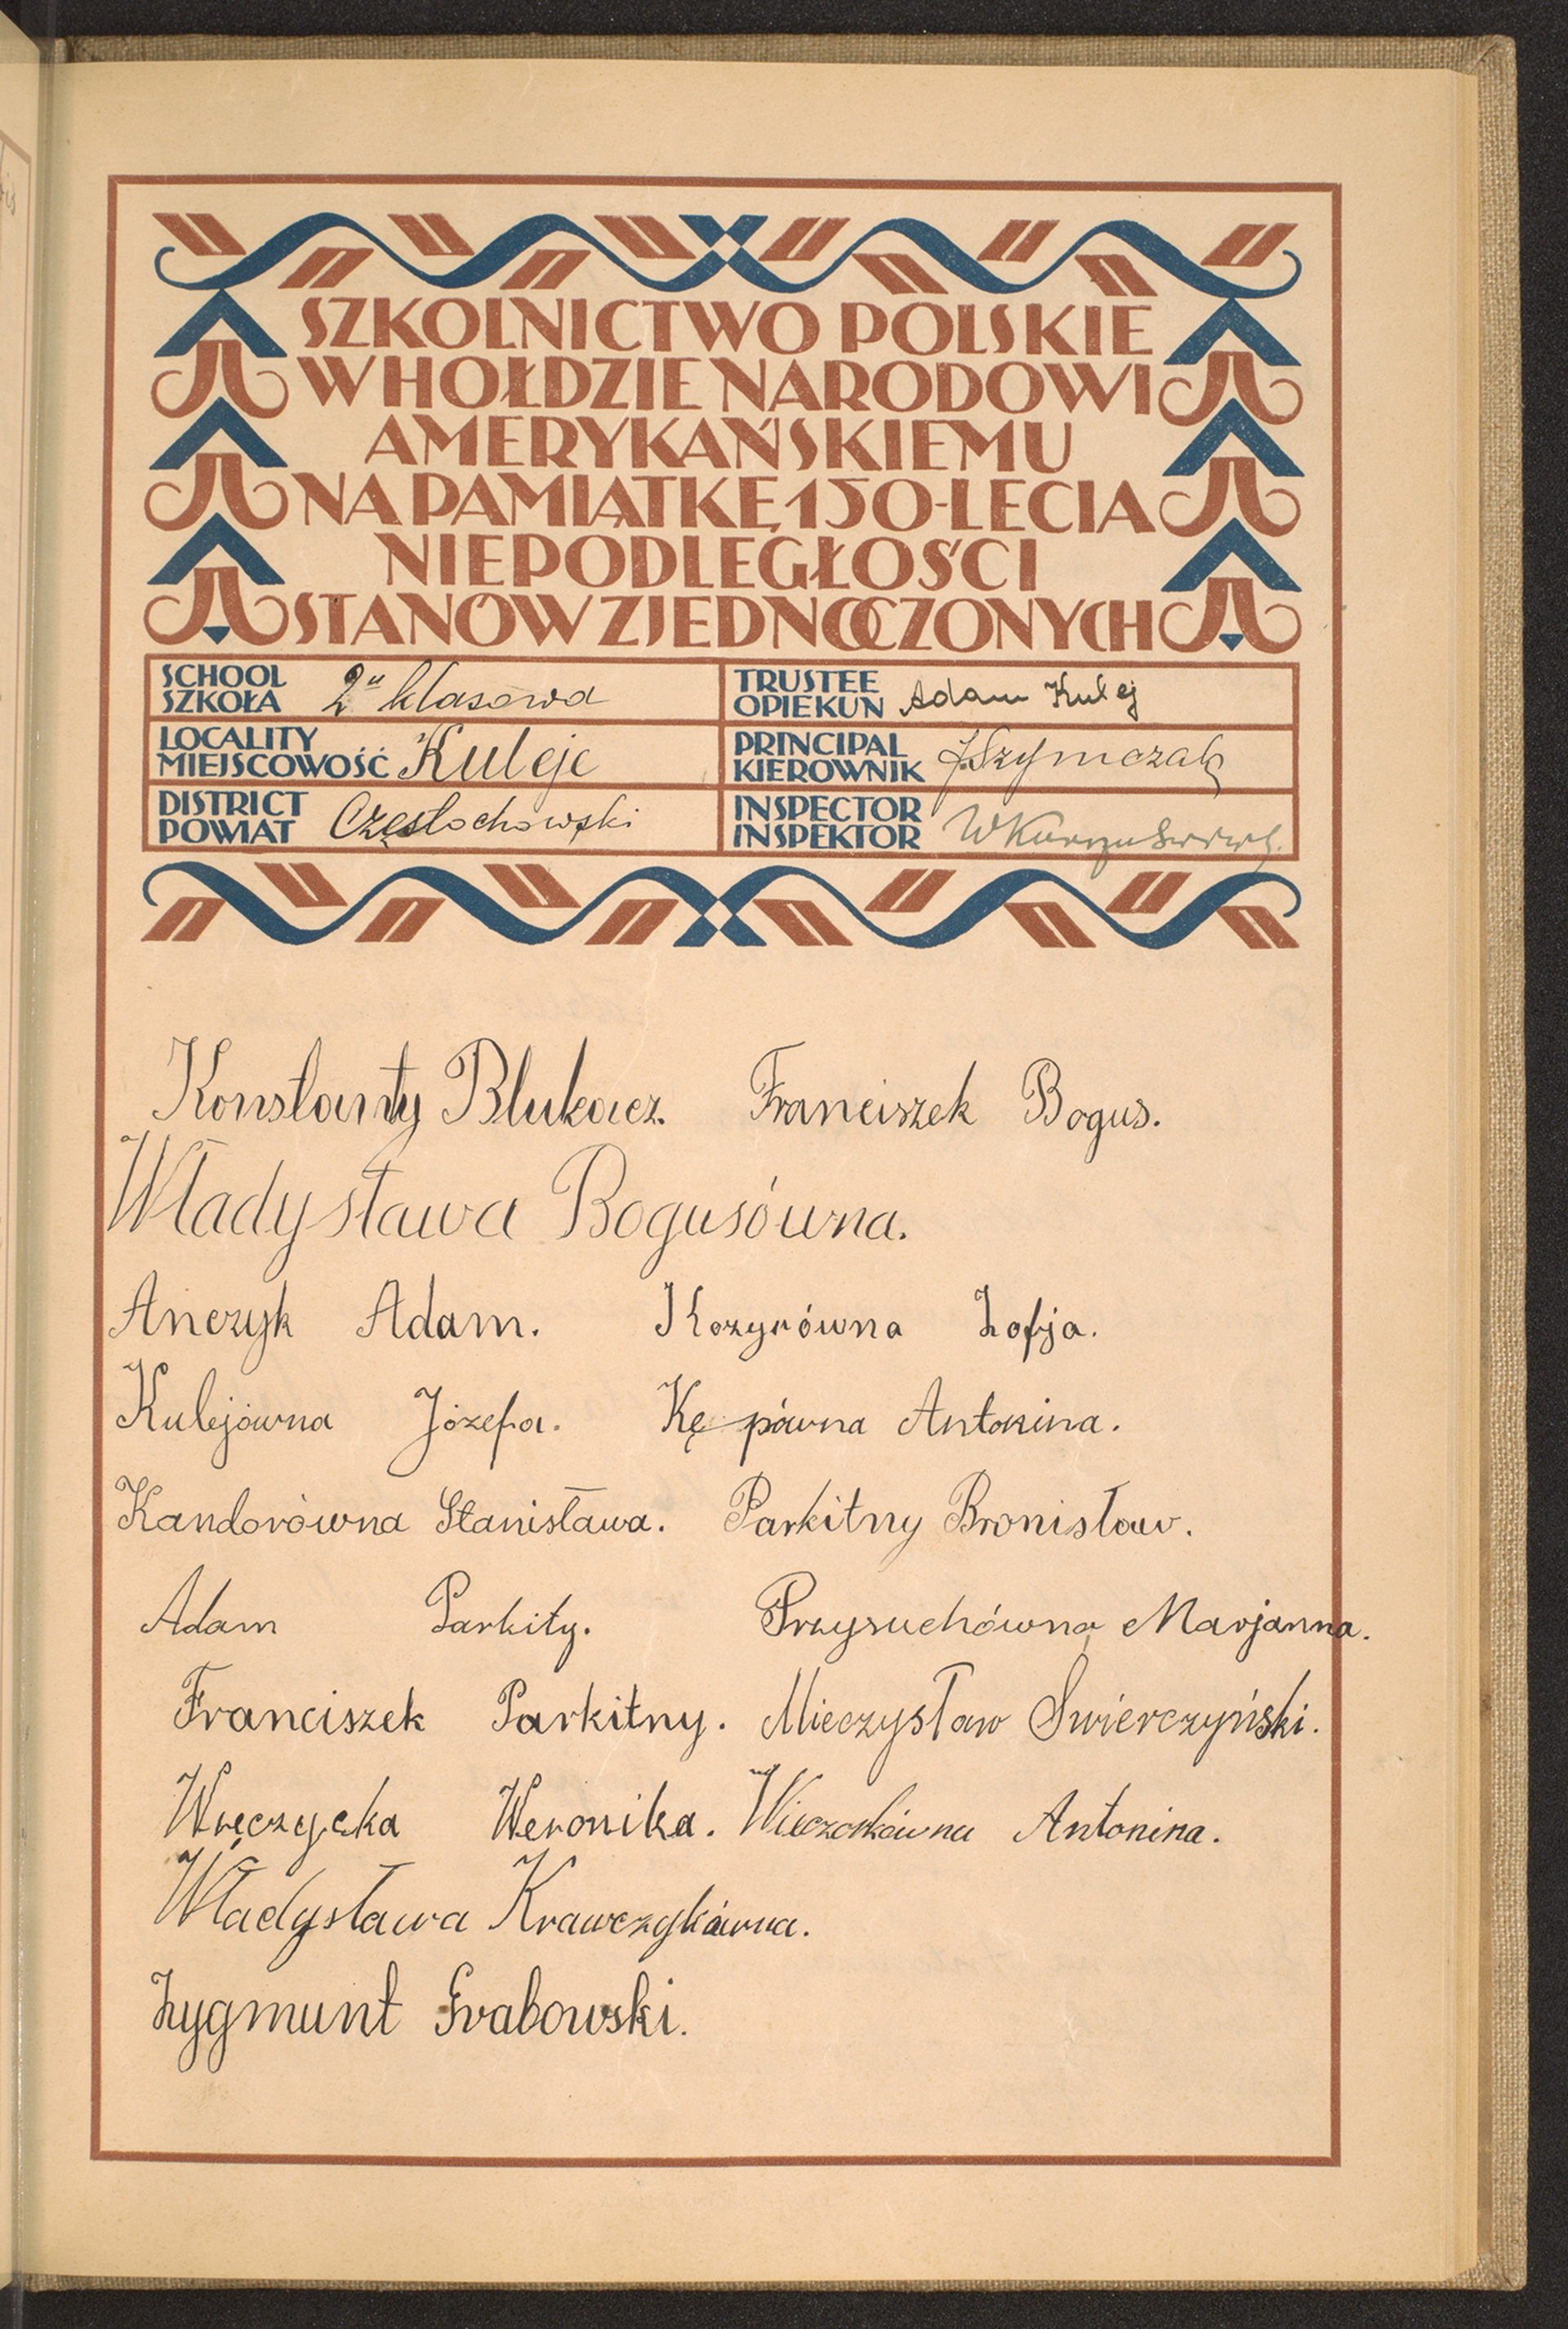 SZKOLNICTWO POLSKIE
W HOŁDZIE NARODOWI
AMERYKAŃSKIEMU
NA PAMIĄTKĘ 150-LECIA
NIEPODLEGŁOŚCI
STANÓW ZJEDNOCZONYCH
SCHOOL
SZKOŁA 2u klasowa
TRUSTEE
OPIEKUN Adam Kulej
LOCALITY
MIEJSCOWOŚĆ Kuleje
PRINCIPAL
KIEROWNIK J. Szymczak
DISTRICT
POWIAT Częstochowski
INSPECTOR
INSPEKTOR
Konstanty Blukacz. Franciszek Bogus.
Władysława Bogusówna.
Ańczyk Adam. Kozyrówna Zofja.
Kulejówna Józefa. Kępówna Antonina.
Kandorówna Stanisława. Parkitny Bronisław.
Adam Parkity. Przysuchówna Marjanna.
Franciszek Parkitny. Mieczysław Świerczyński.
Wręczycka Weronika. Wieczorkówna Antonina.
Władysława Krawczykówna.
Zygmunt Grabowski.